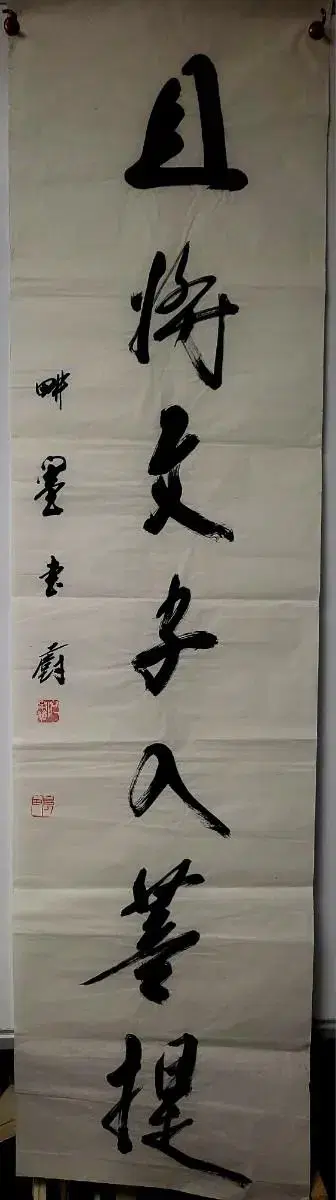 且将文字入菩提
畊墨書廚